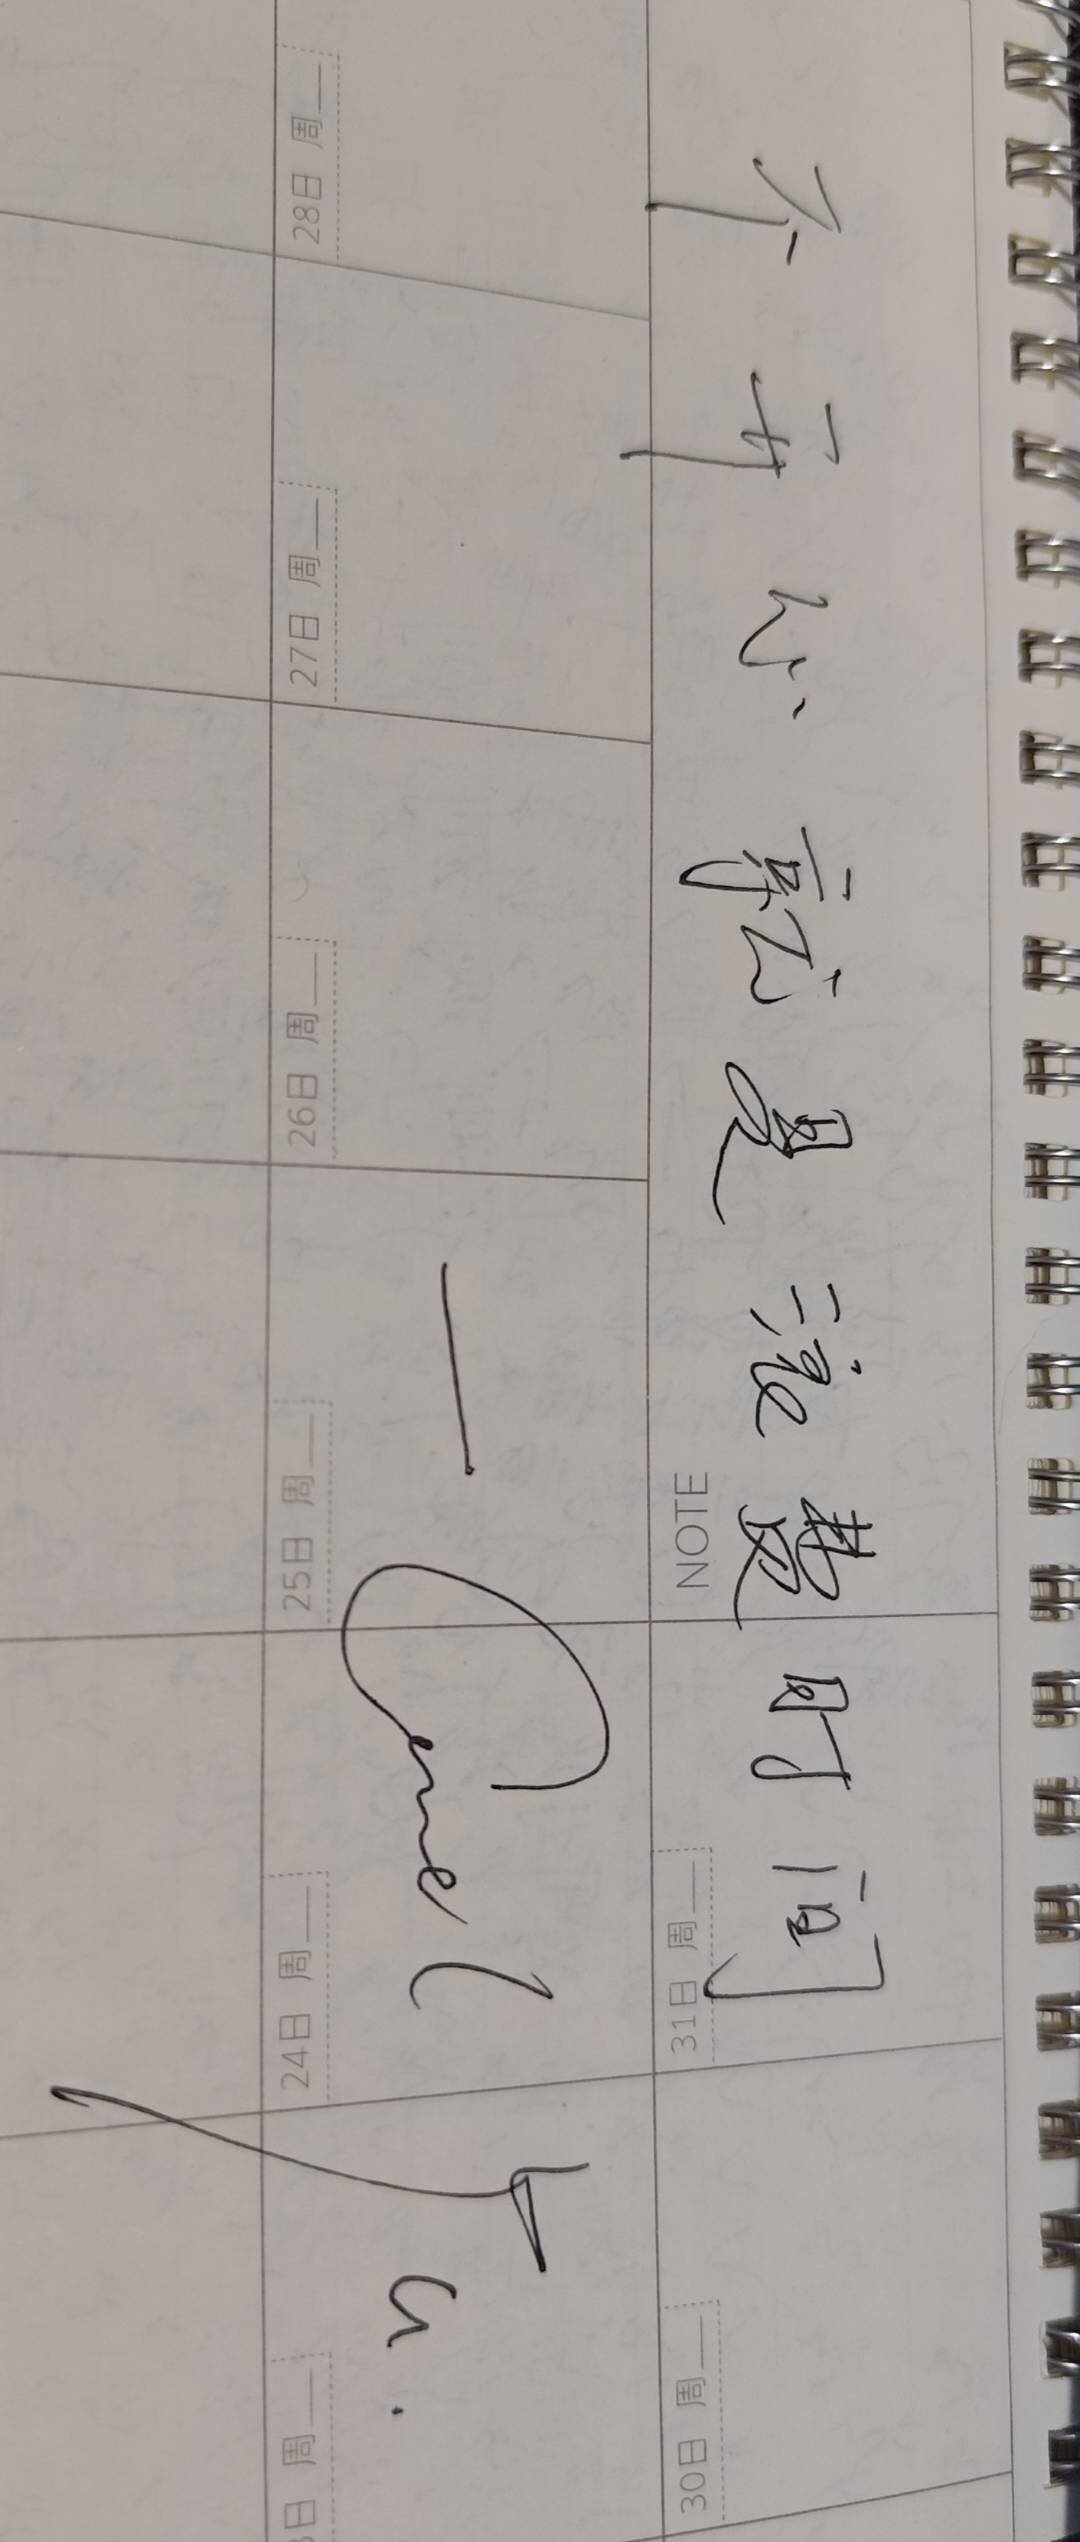 不开心就是浪费时间
— Yu.
NOTE
30日 周__
31日 周__
日 周__
24日 周__
25日 周__
26日 周__
27日 周__
28日 周__